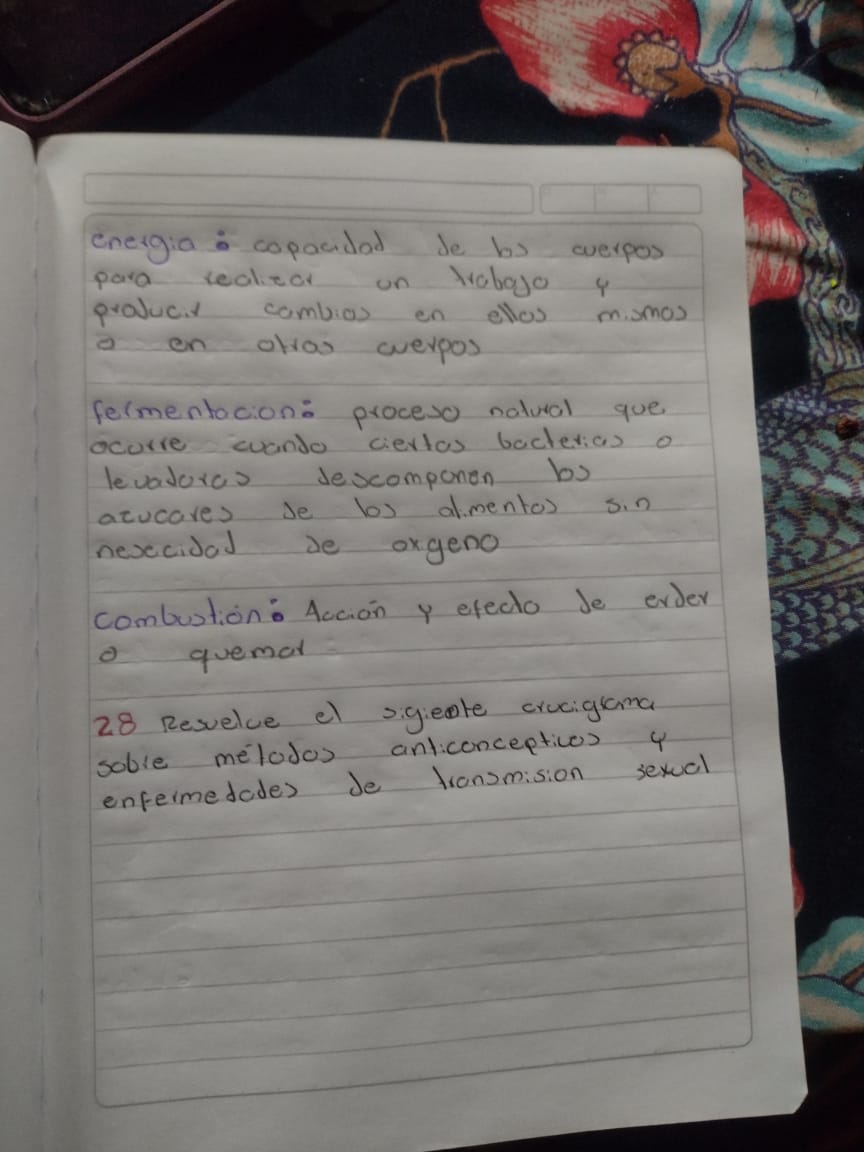 energia: capacidad de los cuerpos
para realizar un trabajo y
producir cambios en ellos mismos
o en otros cuerpos
fermentacion: proceso natural que
ocurre cuando ciertas bacterias o
levaduras descomponen los
azucares de los alimentos sin
nesecidad de oxgeno
combustión: Acción y efecto de erder
o quemar
28 Resuelve el sigiente crucigrama
sobre métodos anticoncepticos y
enfermedades de transmision sexual